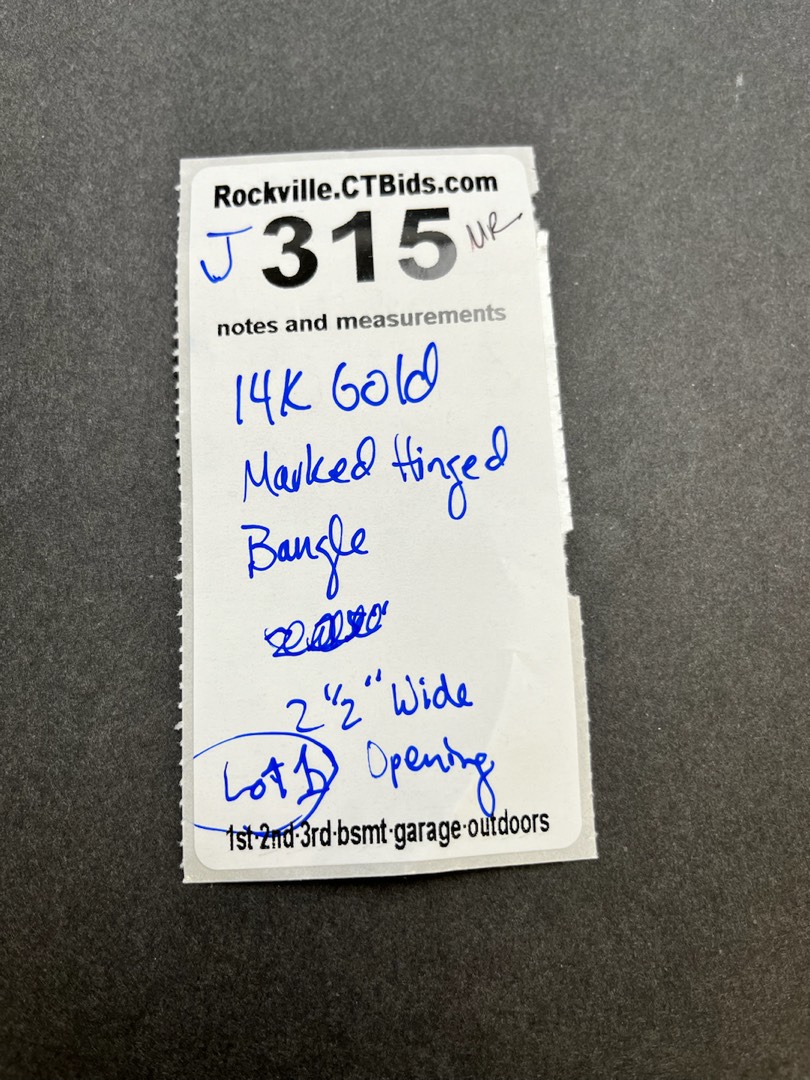 Rockville.CTBids.com
J 315 MR
notes and measurements
14K Gold
Marked Hinged
Bangle
2 1/2" Wide
Opening
Lot
1st·2nd·3rd·bsmt·garage·outdoors